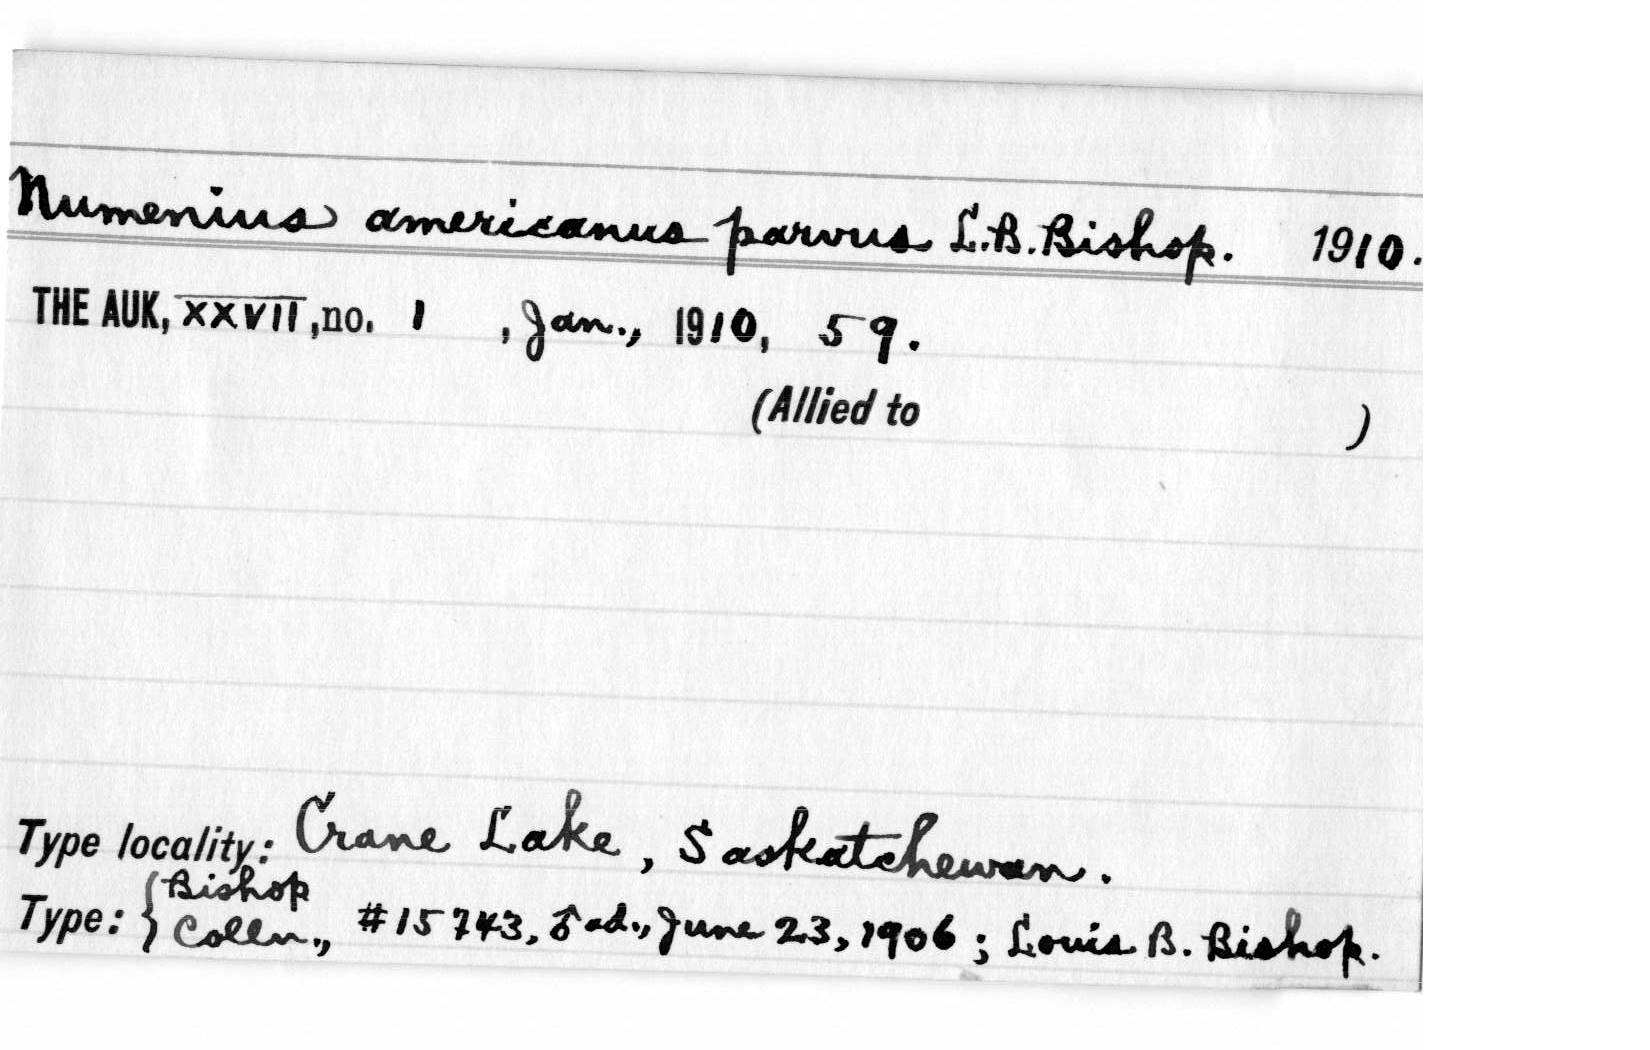 Numenius americanus parvus L.B. Bishop. 1910.
THE AUK, XXVII, no. 1 , Jan., 1910, 59.
(Allied to )
Type locality: Crane Lake, Saskatchewan.
Type: { Bishop Colln., #15743, ♂ ad., June 23, 1906; Louis B. Bishop.